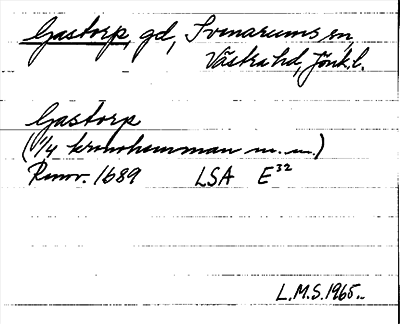 Gastorp, gd, Svenarums sn,
Västra hd, Jönk.l.
Gastorp
(1/4 kronohemman m.m.)
Renov. 1689 LSA E³²
L.M.S. 1965.